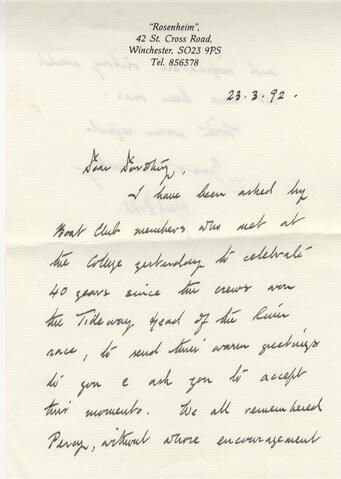 "Rosenheim",
42 St. Cross Road,
Winchester, SO23 9PS
Tel. 856378
23.3.92.
Dear Dorothy,
I have been asked by
Boat Club members who met at
the College yesterday to celebrate
40 years since the crews won
the Tideway Head of the River
race, to send their warm greetings
to you & ask you to accept
this momento. We all remembered
Percy, without whose encouragement